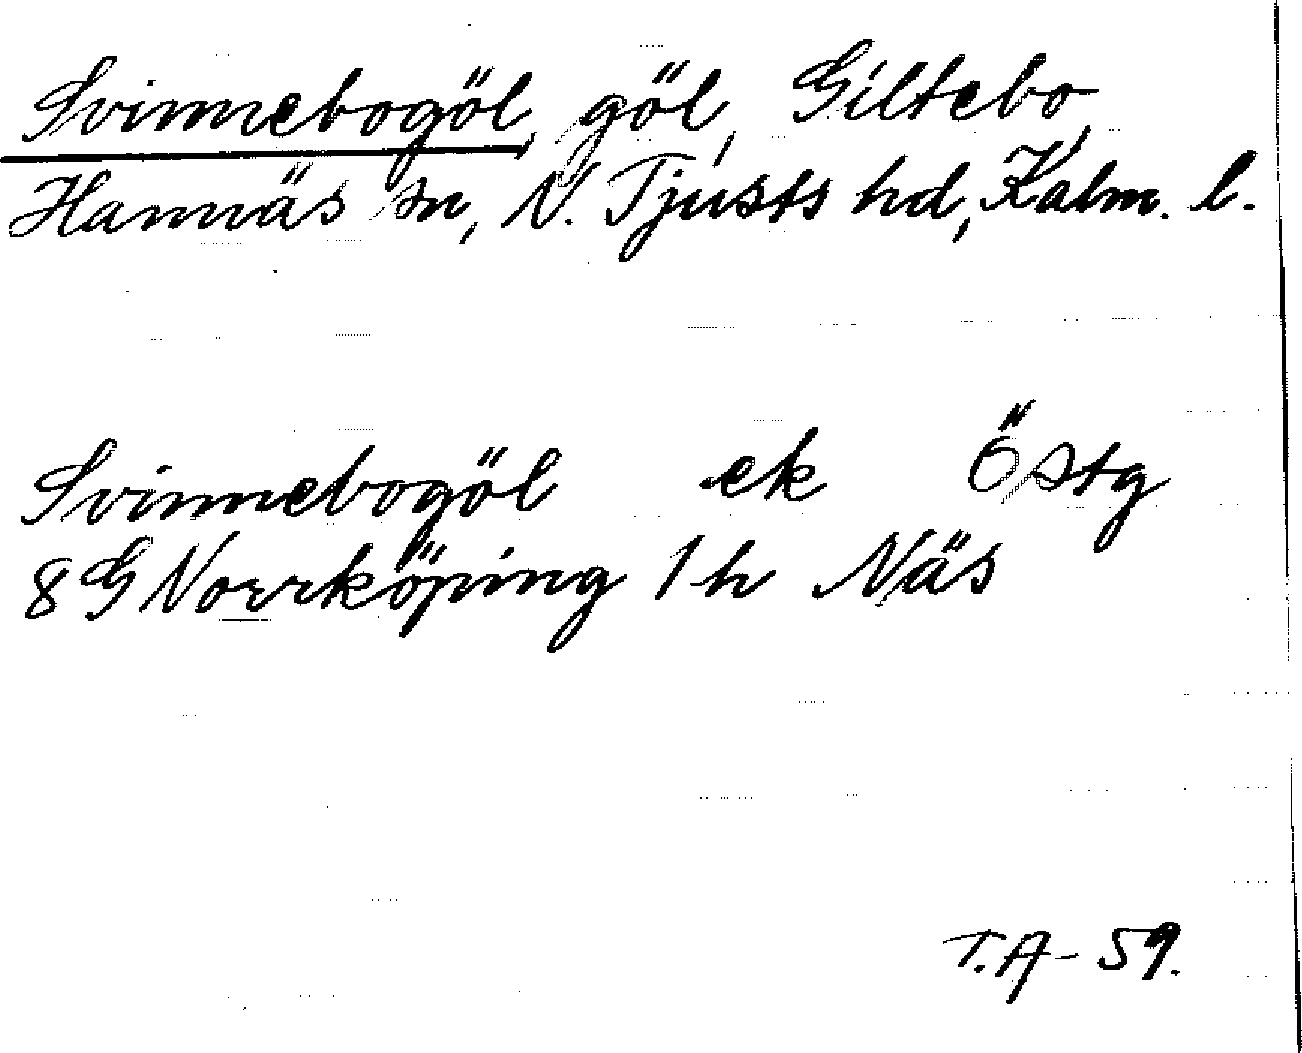 Svinnebogöl, göl, Giltebo,
Hannäs sn, N. Tjusts hd, Kalm. l.
Svinnebogöl ek Östg
8G Norrköping 1h Näs
T.A-59.